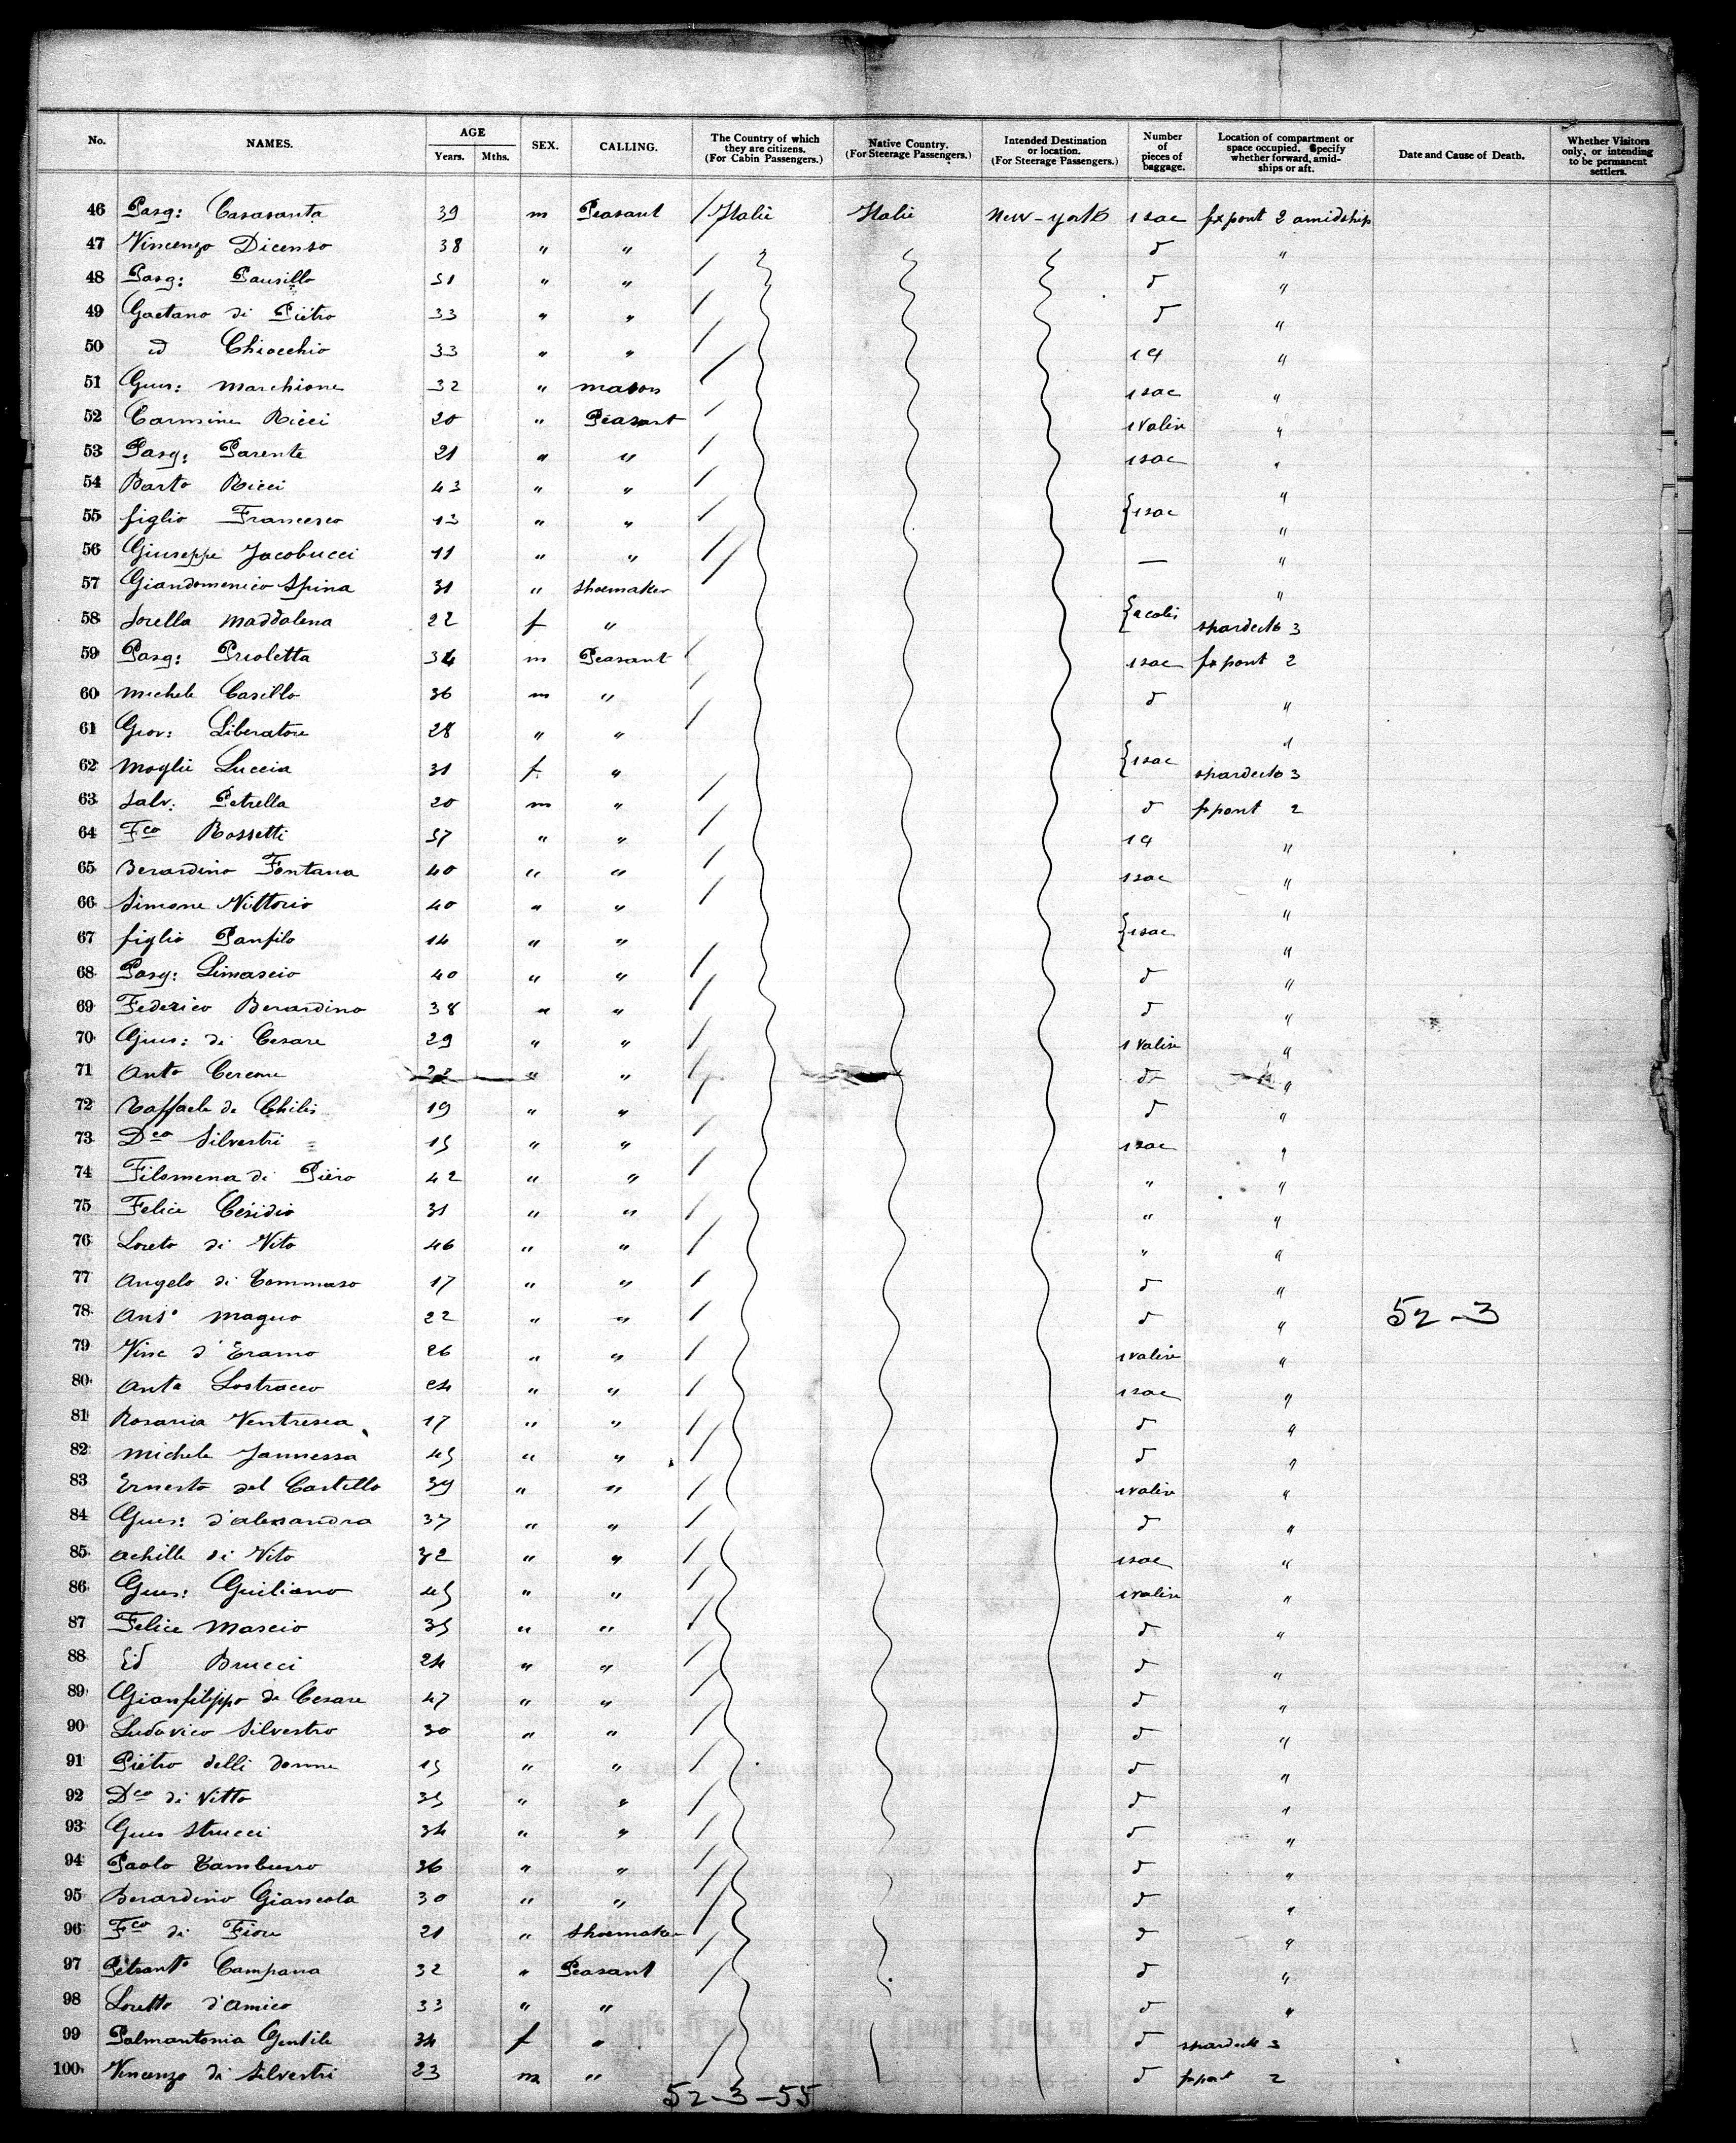 No. NAMES. AGE Years. Mths. SEX. CALLING. The Country of which they are citizens. (For Cabin Passengers.) Native Country. (For Steerage Passengers.) Intended Destination or location. (For Steerage Passengers.) Number of pieces of baggage. Location of compartment or space occupied. Specify whether forward, amidships or aft. Date and Cause of Death. Whether Visitors only, or intending to be permanent settlers.
46 Pasq: Casasanta 39 m Peasant / Italie Italie New-york 1 sac pont 2 amidship
47 Vincenzo Dicenso 38 " " / d "
48 Pasq: Pausillo 31 " " / d "
49 Gaetano di Piētro 33 " " / d "
50 id Chiocchio 33 " " / "
51 Gius: Marchione 32 " mason / 1 sac "
52 Carmine Ricci 20 " Peasant / 1 valise "
53 Pasq: Parente 21 " " / 1 sac "
54 Barto Ricci 43 " " / "
55 figlio Francesco 13 " " / { 1 sac "
56 Giuseppe Jacobucci 11 " " // — "
57 Giandomenico Spina 31 " shoemaker / "
58 Sorella Maddalena 22 f " { 2 colis spardeck 3
59 Pasq: Prioletta 34 m Peasant / 1 sac pont 2
60 Michele Casillo 36 m " / d "
61 Giov: Liberatore 28 " " / "
62 Moglie Luccia 31 f " { 1 sac spardeck 3
63 Salv: Petrella 20 m " / d pont 2
64 Fco Rossetti 37 " " / "
65 Berardino Fontana 40 " " / 1 sac "
66 Simone Vittorio 40 " " / "
67 figlio Panfilo 14 " " { 1 sac "
68 Pasq: Limascio 40 " " / d "
69 Federico Berardino 38 " " / d "
70 Gius: di Cesare 29 " " / 1 valise "
71 Anto Cerone " " / d "
72 Raffaele de Chilis 19 " " / d "
73 Dco Silvestri 15 " " / 1 sac "
74 Filomena di Piēro 42 " " / " "
75 Felice Cesidio 31 " " / " "
76 Loreto di Vito 46 " " / " "
77 Angelo di Tommaso 17 " " / d "
78 Anto Magno 22 " " / d " 52-3
79 Vinc d'Eramo 26 " " / 1 valise "
80 Anto Lostracco 24 " " / 1 sac "
81 Rosaria Ventresca 17 " " / d "
82 Michele Jannessa 45 " " / d "
83 Ernesto del Castello 39 " " / 1 valise "
84 Gius: d'alexandra 37 " " / d "
85 Achille di Vito 32 " " / 1 sac "
86 Gius: Guiliano 45 " " / 1 valise "
87 Felice Mascio 35 " " / d "
88 Id Brucci 24 " " / d "
89 Gianfilippo de Cesare 47 " " / d "
90 Ludovico Silvestro 30 " " / d "
91 Piētro delli donne 15 " " / d "
92 Dco di Vitto 35 " " / d "
93 Gius Strucci 34 " " / d "
94 Paolo Tamburro 36 " " / d "
95 Berardino Giancola 30 " " / d "
96 Fco di Fiore 21 " shoemaker / d "
97 Petranto Campana 32 " Peasant / d "
98 Loretto d'amico 33 " " d "
99 Palmantonia Gentile 34 f " / d spardeck 3
100 Vincenzo di Silvestri 23 m " / d pont 2
52-3-55